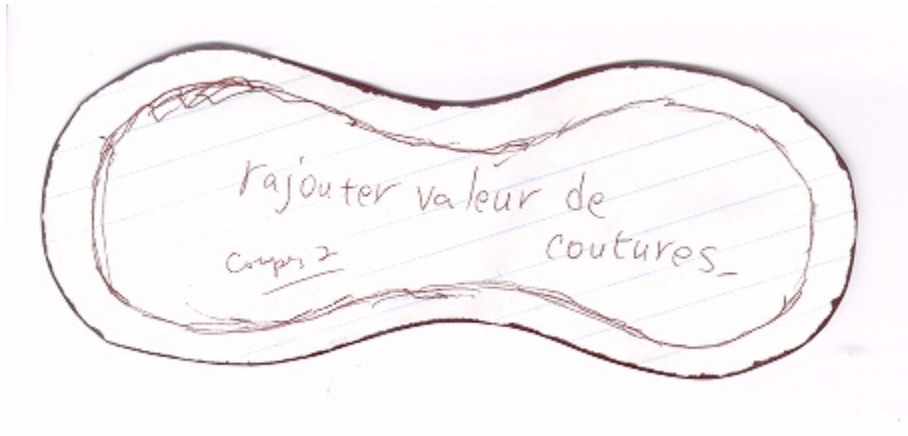 rajouter valeur de
coutures_
Coupes 2